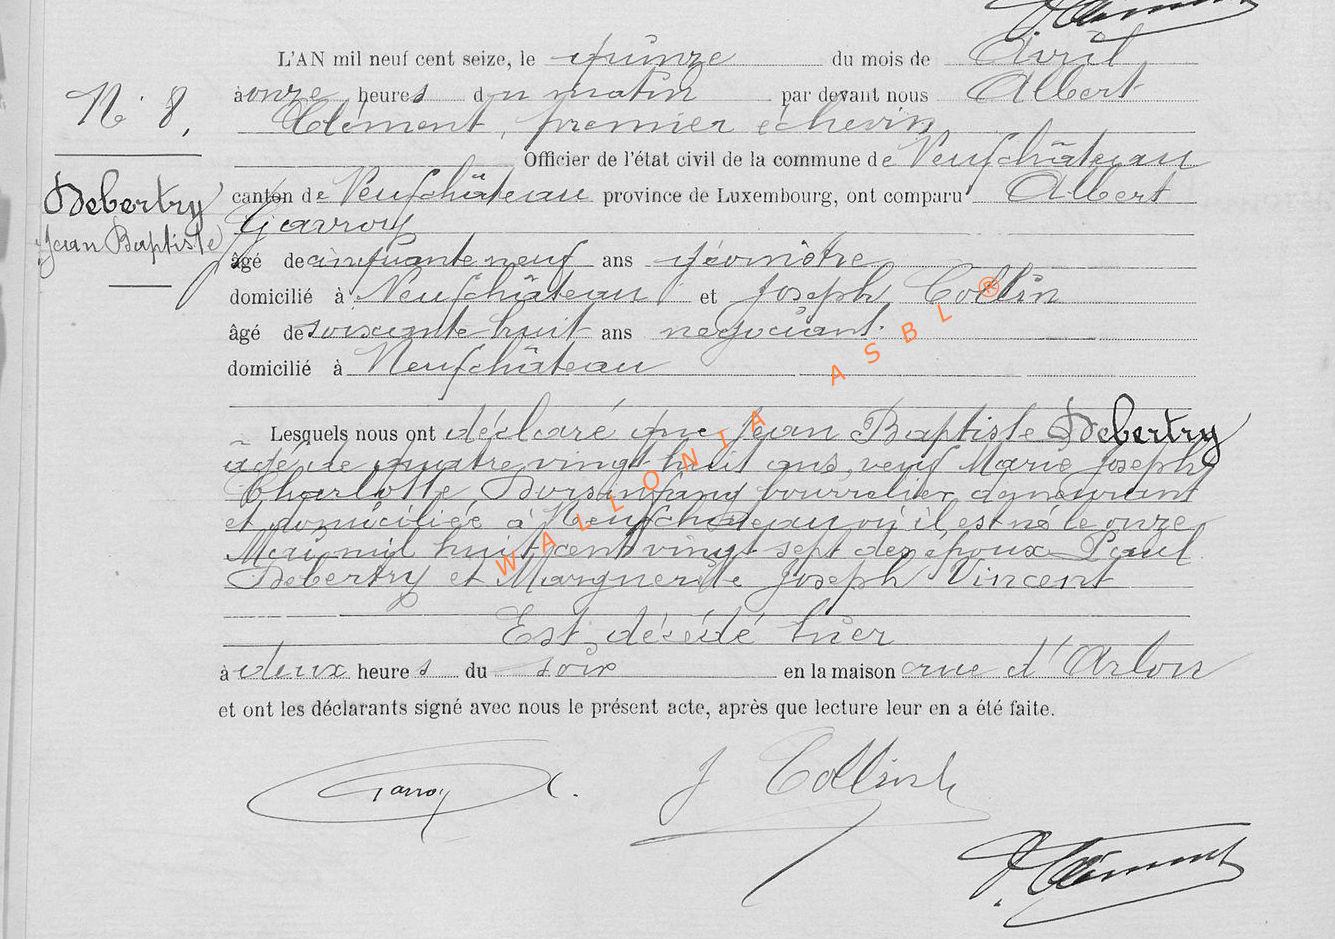 L'AN mil neuf cent seize, le quinze du mois de Avril
N° 8.
à onze heures du matin par devant nous Albert
Clément, premier échevin
Officier de l'état civil de la commune de Neufchâteau
Debertry
Jean Baptiste
canton de Neufchâteau province de Luxembourg, ont comparu Albert
Gavroy
âgé de cinquante neuf ans géomètre
domicilié à Neufchâteau et Joseph Collin
âgé de soixante huit ans negociant.
domicilié à Neufchâteau
Lesquels nous ont déclaré que Jean Baptiste Debertry
agé de quatre vingt huit ans, veuf Marie Joseph
Charlotte bourrelier, demeurant
et domiciliée à Neufchateau où il est né le onze
Mai mil huit cent vingt sept des époux Paul
Debertry et Marguerite Joseph Vincent
Est décédé hier
à deux heures du soir en la maison rue d'Arlon
et ont les déclarants signé avec nous le présent acte, après que lecture leur en a été faite.
J Collin
Clément
WALLONIA ASBL ®